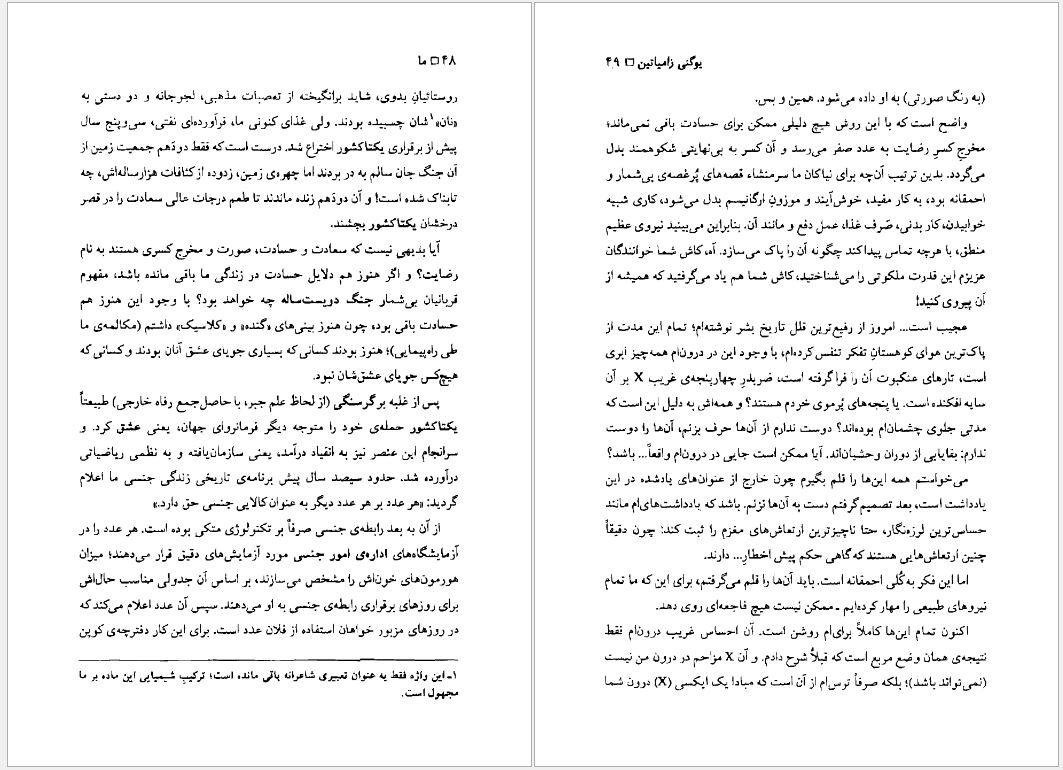 ۴۸ □ ما
روستائیانِ بدوی، شاید برانگیخته از تعصبات مذهبی، لجوجانه و دو دستی به
«نان»۱شان چسبیده بودند. ولی غذای کنونی ما، فرآورده‌ای نفتی، سی‌و‌پنج سال
پیش از برقراری یکتاکشور اختراع شد. درست است که فقط دودَهم جمعیت زمین از
آن جنگ جان سالم به در بردند اما چهره‌ی زمین، زدوده از کثافات هزارساله‌اش، چه
تابناک شده است! و آن دودَهم زنده ماندند تا طعم درجات عالی سعادت را در قصر
درخشان یکتاکشور بچشند.
آیا بدیهی نیست که سعادت و حسادت، صورت و مخرج کسری هستند به نام
رضایت؟ و اگر هنوز هم دلایل حسادت در زندگی ما باقی مانده باشد، مفهوم
قربانیان بی‌شمار جنگ دویست‌ساله چه خواهد بود؟ با وجود این هنوز هم
حسادت باقی بود، چون هنوز بینی‌های «گنده» و «کلاسیک» داشتم (مکالمه‌ی ما
طی راه‌پیمایی)؛ هنوز بودند کسانی که بسیاری جویای عشق آنان بودند و کسانی که
هیچ‌کس جویای عشق‌شان نبود.
پس از غلبه بر گرسنگی (از لحاظ علم جبر، با حاصل‌جمع رفاه خارجی) طبیعتاً
یکتاکشور حمله‌ی خود را متوجه دیگر فرمانروای جهان، یعنی عشق کرد. و
سرانجام این عنصر نیز به انقیاد درآمد، یعنی سازمان‌یافته و به نظمی ریاضیاتی
درآورده شد. حدود سیصد سال پیش برنامه‌ی تاریخی زندگی جنسی ما اعلام
گردید: «هر عدد بر هر عدد دیگر به عنوان کالایی جنسی حق دارد.»
از آن به بعد رابطه‌ی جنسی صرفاً بر تکنولوژی متکی بوده است. هر عدد را در
آزمایشگاه‌های اداره‌ی امور جنسی مورد آزمایش‌های دقیق قرار می‌دهند؛ میزان
هورمون‌های خون‌اش را مشخص می‌سازند، بر اساس آن جدولی مناسب حال‌اش
برای روزهای برقراری رابطه‌ی جنسی به او می‌دهند. سپس آن عدد اعلام می‌کند که
در روزهای مزبور خواهان استفاده از فلان عدد است. برای این کار دفترچه‌ی کوپن
۱ـ این واژه فقط به عنوان تعبیری شاعرانه باقی مانده است؛ ترکیب شیمیایی این ماده بر ما
مجهول است.
یوگنی زامیاتین □ ۴۹
(به رنگ صورتی) به او داده می‌شود. همین و بس.
واضح است که با این روش هیچ دلیلی ممکن برای حسادت باقی نمی‌ماند؛
مخرجِ کسرِ رضایت به عدد صفر می‌رسد و آن کسر به بی‌نهایتی شکوهمند بدل
می‌گردد. بدین ترتیب آن‌چه برای نیاکان ما سرمنشاء قصه‌های پُرغصه‌ی بی‌شمار و
احمقانه بود، به کار مفید، خوش‌آیند و موزونِ ارگانیسم بدل می‌شود، کاری شبیه
خوابیدن، کار بدنی، صَرف غذا، عمل دفع و مانند آن. بنابراین می‌بینید نیروی عظیم
منطق، با هرچه تماس پیدا کند چگونه آن را پاک می‌سازد. آه، کاش شما خوانندگان
عزیزم این قدرت ملکوتی را می‌شناختید، کاش شما هم یاد می‌گرفتید که همیشه از
آن پیروی کنید!
عجیب است... امروز از رفیع‌ترین قلل تاریخ بشر نوشته‌ام؛ تمام این مدت از
پاک‌ترین هوای کوهستانِ تفکر تنفس کرده‌ام، با وجود این در درون‌ام همه‌چیز ابری
است، تارهای عنکبوت آن را فرا گرفته است، ضربدرِ چهارپنجه‌ی غریب X بر آن
سایه افکنده است. یا پنجه‌های پُرموی خودم هستند؟ و همه‌اش به دلیل این است که
مدتی جلوی چشمان‌ام بوده‌اند؟ دوست ندارم از آن‌ها حرف بزنم، آن‌ها را دوست
ندارم: بقایایی از دوران وحشیان‌اند. آیا ممکن است جایی در درون‌ام واقعاً... باشد؟
می‌خواستم همه این‌ها را قلم بگیرم چون خارج از عنوان‌های یادشده در این
یادداشت است، بعد تصمیم گرفتم دست به آن‌ها نزنم. باشد که یادداشت‌های‌ام مانند
حساس‌ترین لرزه‌نگار، حتا ناچیزترین ارتعاش‌های مغزم را ثبت کند: چون دقیقاً
چنین ارتعاش‌هایی هستند که گاهی حکم پیش اخطار... دارند.
اما این فکر به‌کُلی احمقانه است. باید آن‌ها را قلم می‌گرفتم، برای این که ما تمام
نیروهای طبیعی را مهار کرده‌ایم ـ ممکن نیست هیچ فاجعه‌ای روی دهد.
اکنون تمام این‌ها کاملاً برای‌ام روشن است. آن احساس غریب درون‌ام فقط
نتیجه‌ی همان وضع مربع است که قبلاً شرح دادم. و آن X مزاحم در درون من نیست
(نمی‌تواند باشد)؛ بلکه صرفاً ترس‌ام از آن است که مبادا یک ایکسی (X) درون شما